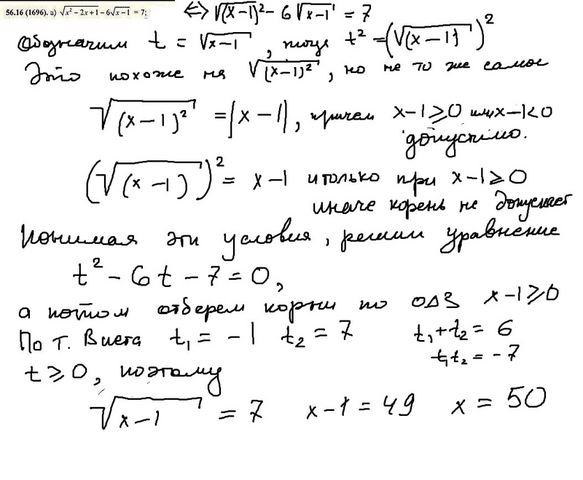 56.16 (1696). а) √(x² − 2x + 1) − 6√(x − 1) = 7; ⟺ √((x−1)²) − 6√(x−1) = 7
Обозначим t = √(x−1), тогда t² = (√(x−1))²
Это похоже на √((x−1)²), но не то же самое
√((x−1)²) = |x−1|, причем x−1≥0 или x−1<0
допустимо.
(√(x−1))² = x−1 и только при x−1≥0
иначе корень не допускает
Понимая эти условия, решим уравнение
t² − 6t − 7 = 0,
а потом отберем корни по ОДЗ x−1≥0
По т. Виета t₁ = −1 t₂ = 7 t₁+t₂ = 6
t₁t₂ = −7
t ≥ 0, поэтому
√(x−1) = 7 x−1 = 49 x = 50